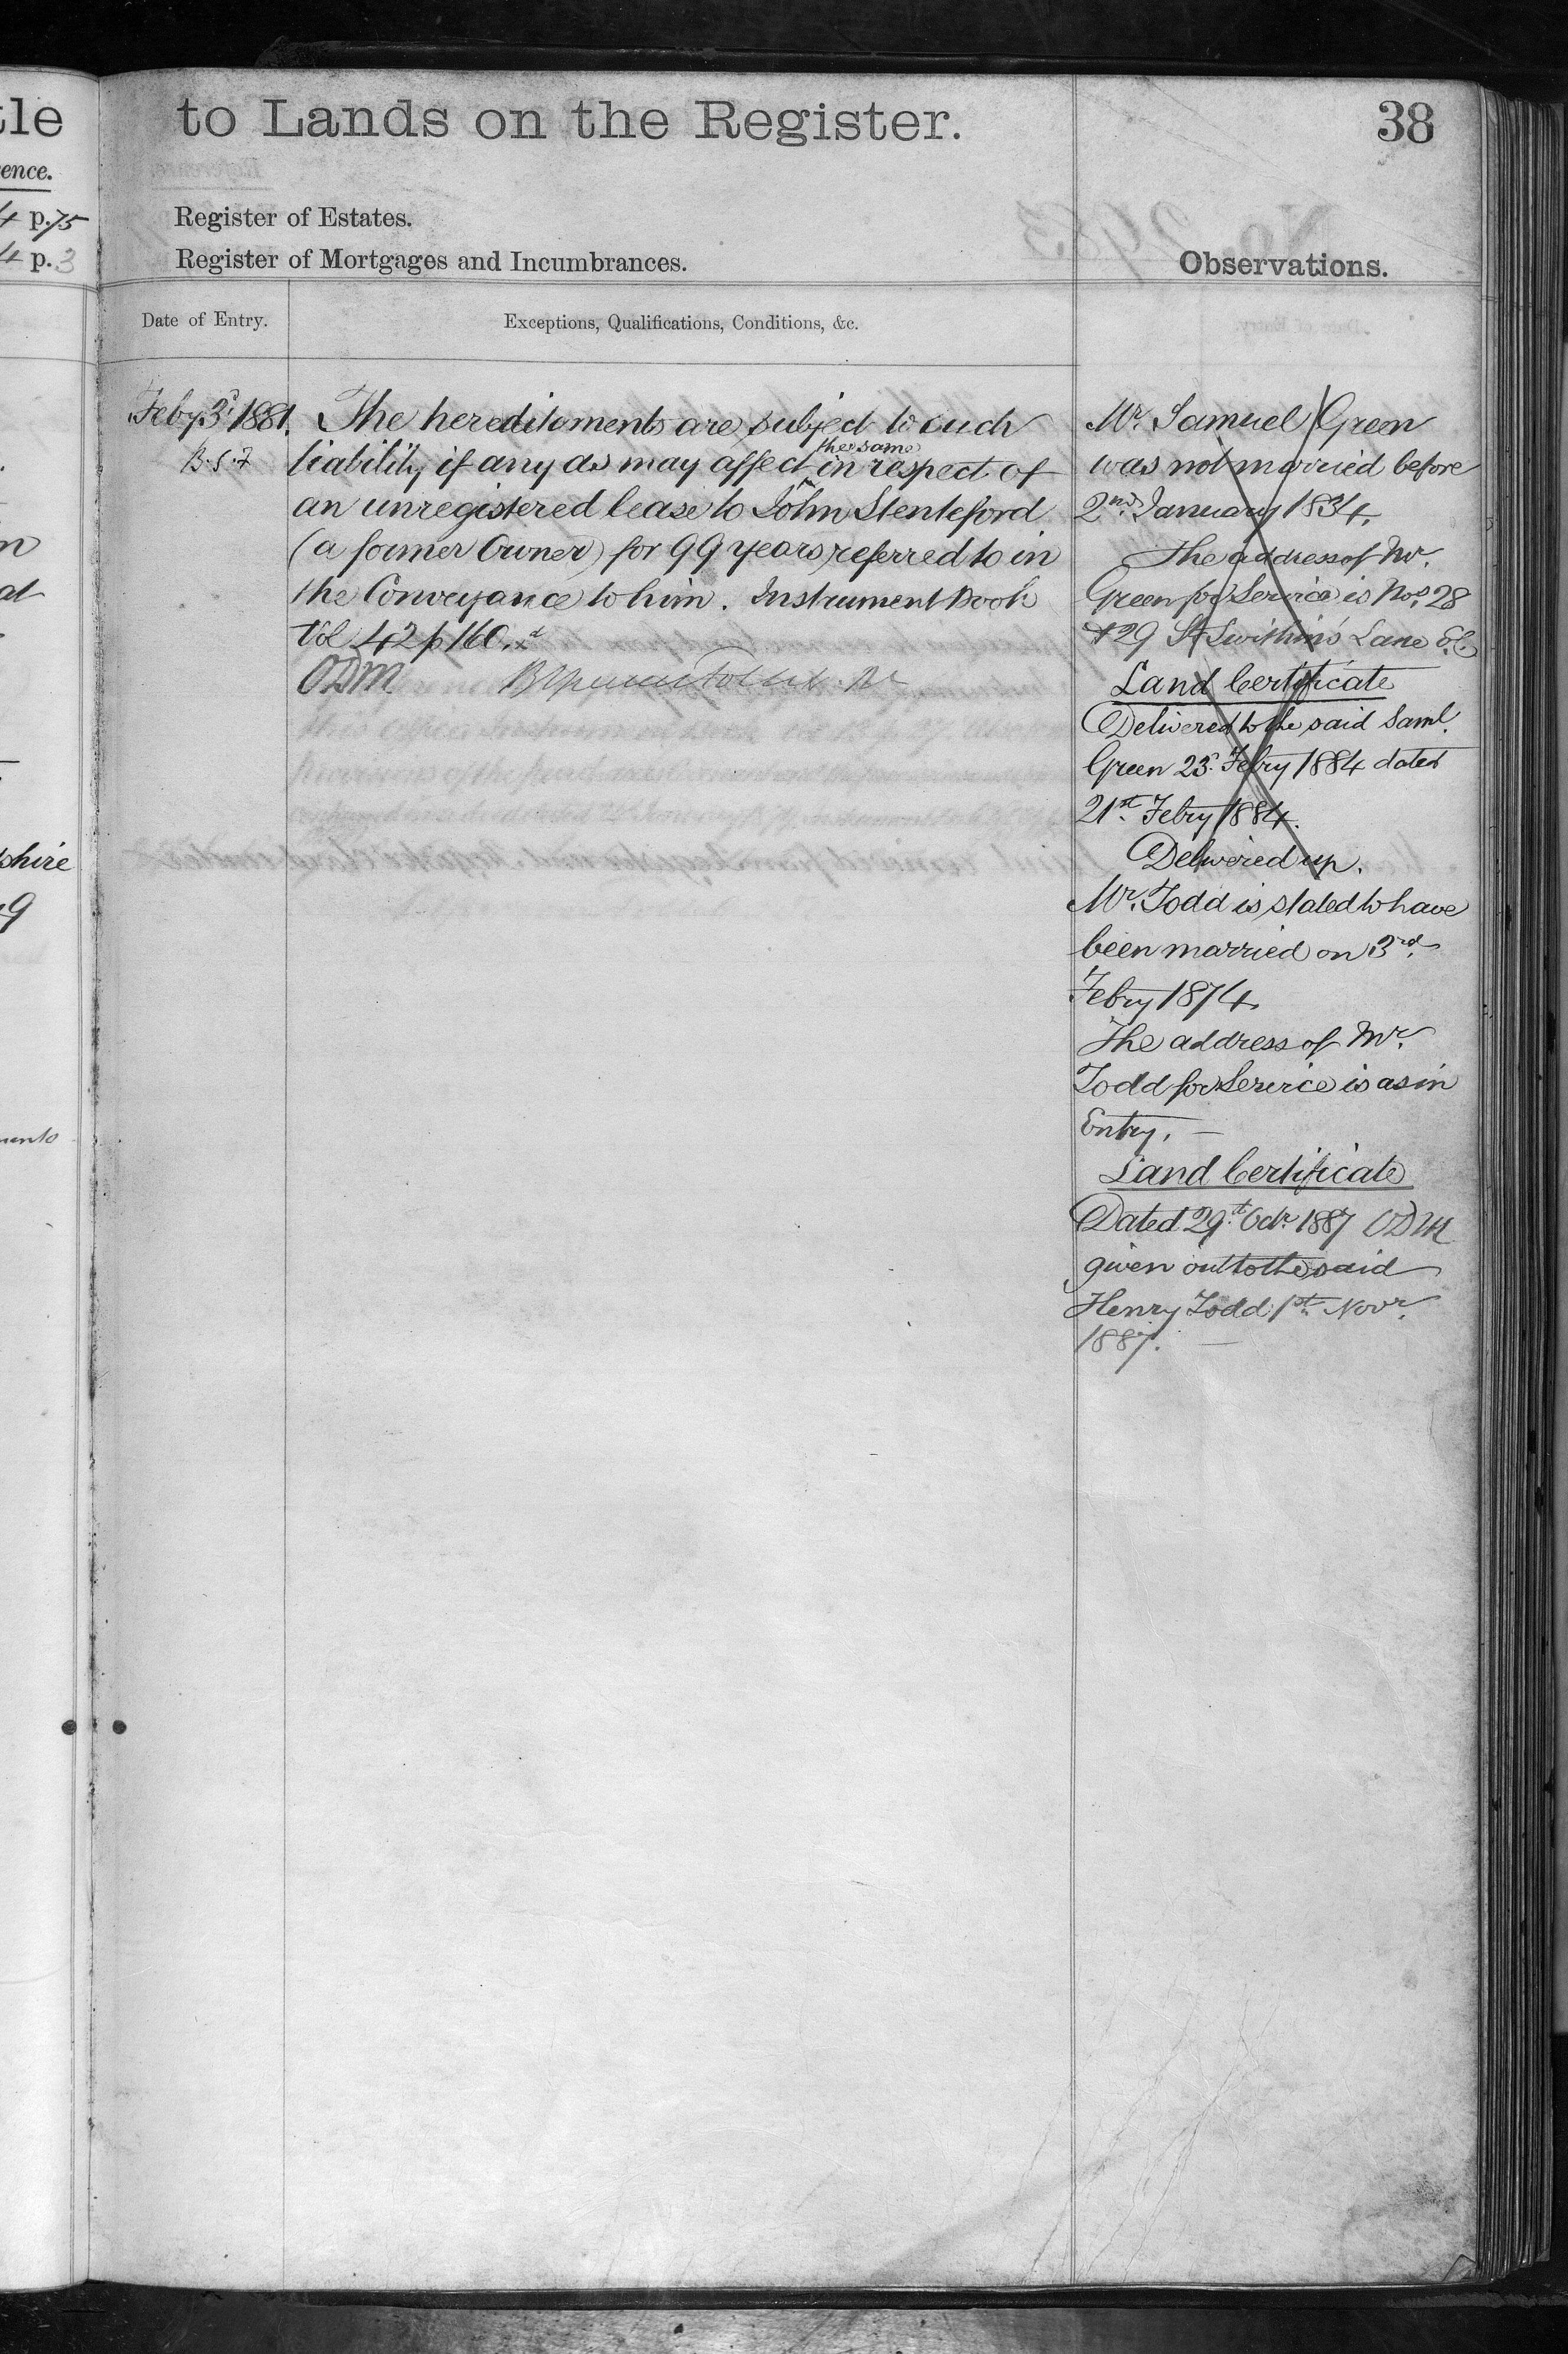 tle
ence.
4 p.75
4 p.3
n
at
shire
9
ments
to Lands on the Register.
38
Register of Estates.
Register of Mortgages and Incumbrances.
Observations.
Date of Entry.
Exceptions, Qualifications, Conditions, &c.
Feby. 3d. 1881.
B.S.7
The hereditaments are subject to such
liability if any as may affect the same in respect of
an unregistered lease to John Stenteford
(a former Owner) for 99 years referred to in
the Conveyance to him. Instrument Book
Vol 42 p 160.
ODM
Mr. Samuel Green
was not married before
2nd. January 1834.
The address of Mr.
Green for Service is Nos. 28
& 29 St Swithin's Lane E.C.
Land Certificate
Delivered to the said Saml.
Green 23d. Febry 1884 dated
21st. Febry 1884.
Delivered up.
Mr. Todd is stated to have
been married on 3rd.
Febry 1874.
The address of Mr.
Todd for Service is as in
Entry. —
Land Certificate
Dated 29th. Octr. 1887 ODM
given out to the said
Henry Todd 1st. Novr.
1887. —